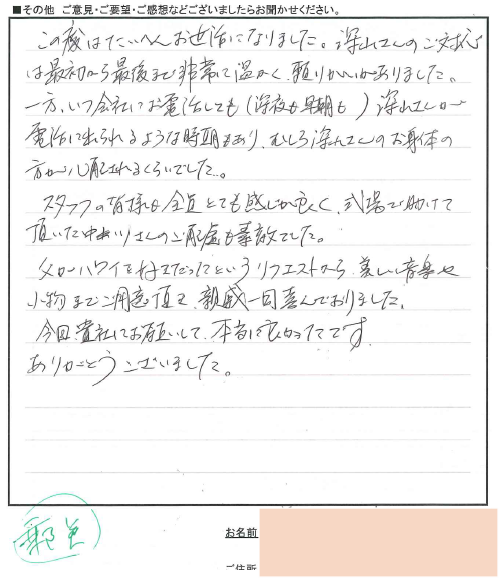 ■その他 ご意見・ご要望・ご感想などございましたらお聞かせください。
この度はたいへんお世話になりました。深山さんのご対応
は最初から最後まで非常に温かく、頼りがいがありました。
一方、いつ会社にお電話しても(深夜も早朝も)深山さんが
電話に出られるような時期もあり、むしろ深山さんのお身体の
方が心配されるくらいでした。
スタッフの皆様も全員とても感じが良く、式場で助けて
頂いた中 さんのご配慮も素敵でした。
父がハワイを好きだったというリクエストから、美しい音楽や
小物までご用意頂き、親戚一同喜んでおりました。
今回、貴社にお願いして、本当に良かったです。
ありがとうございました。
お名前
ご住所